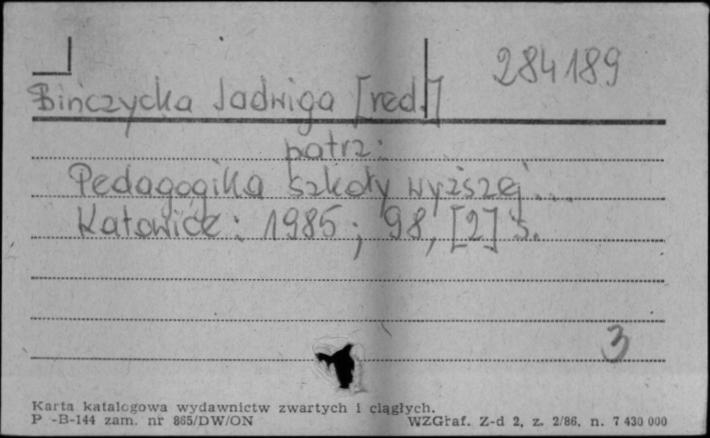 284189
Bińczycka Jadwiga [red.]
patrz:
Pedagogika szkoły wyższej...
Katowice: 1985; 98, [2] s.
3
Karta katalogowa wydawnictw zwartych i ciągłych.
P -B-144 zam. nr 865/DW/ON WZGraf. Z-d 2, z. 2/86, n. 7 430 000